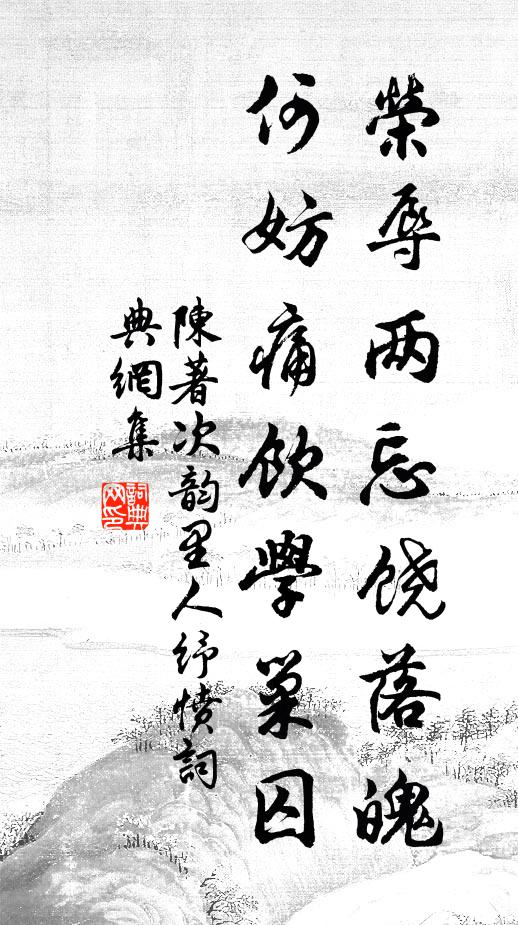 榮辱两忘饶落魄
何妨痛飲學巢囚
陳著次韵里人紓憤詞
典網集
詞典网印